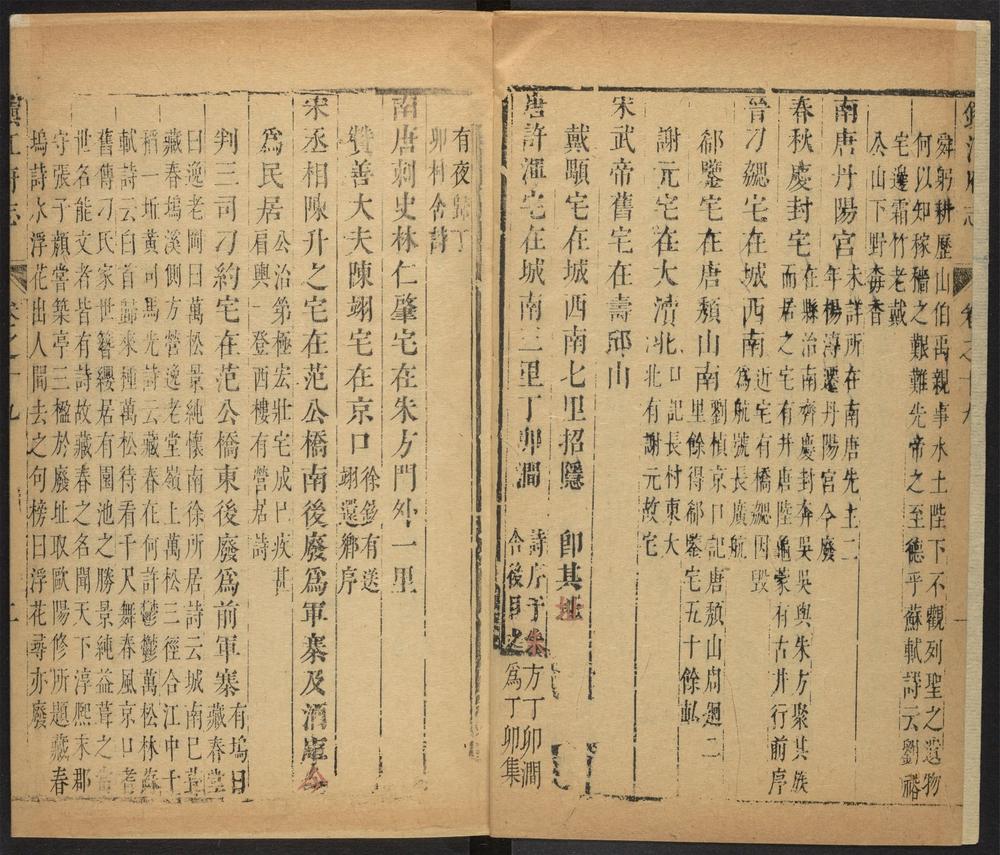 舜躬耕歷山伯禹親事水土陛下不觀列聖之遺物
何以知稼穡之艱難先帝之至德乎蘇軾詩云劉裕
宅邊霜竹老戴
公山下野梅香
南唐丹陽宮未詳所在南唐先主二
年楊溥遷丹陽宮今廢
春秋慶封宅在縣治南齊慶封奔吳吳與朱方聚其族
而居之宅有井唐陸龜蒙有古井行前序
晉刁勰宅在城西南近宅有橋勰因毀
為航號長廣航
郗鑒宅在唐頹山南劉楨京口記唐頹山周廻二
里餘得郗鑒宅五十餘畝
謝元宅在大瀆北口記長村東大
北有謝元故宅
宋武帝舊宅在壽邱山
戴顒宅在城西南七里招隱 卽其址
唐許渾宅在城南三里丁卯澗 詩序于朱方丁卯澗
舍後目之為丁卯集
有夜歸丁
卯村舍詩
南唐刺史林仁肇宅在朱方門外一里
贊善大夫陳翊宅在京口徐鉉有送
翊還鄉序
宋丞相陳升之宅在范公橋南後廢為軍寨及酒庫今
為民居公治第極宏壯宅成已疾甚
肩輿一登西樓有營居詩
判三司刁約宅在范公橋東後廢為前軍寨有塢曰
藏春堂
曰逸老岡曰萬松景純懷南徐所居詩云城南已葺
藏春塢溪側方營逸老堂嶺上萬松三徑合江中千
稻一圻黃司馬光詩云藏春在何許鬱鬱萬松林蘇
軾詩云白首歸來種萬松待看千尺舞春風京口耆
舊傳刁氏家世簪纓居有園池之勝景純益葺之當
世名能文者皆有詩故藏春之名聞天下淳熙末郡
守張子顏嘗築亭三楹於廢址取歐陽修所題藏春
塢詩水浮花出人間去之句榜曰浮花尋亦廢
鎮江府志 卷之十九